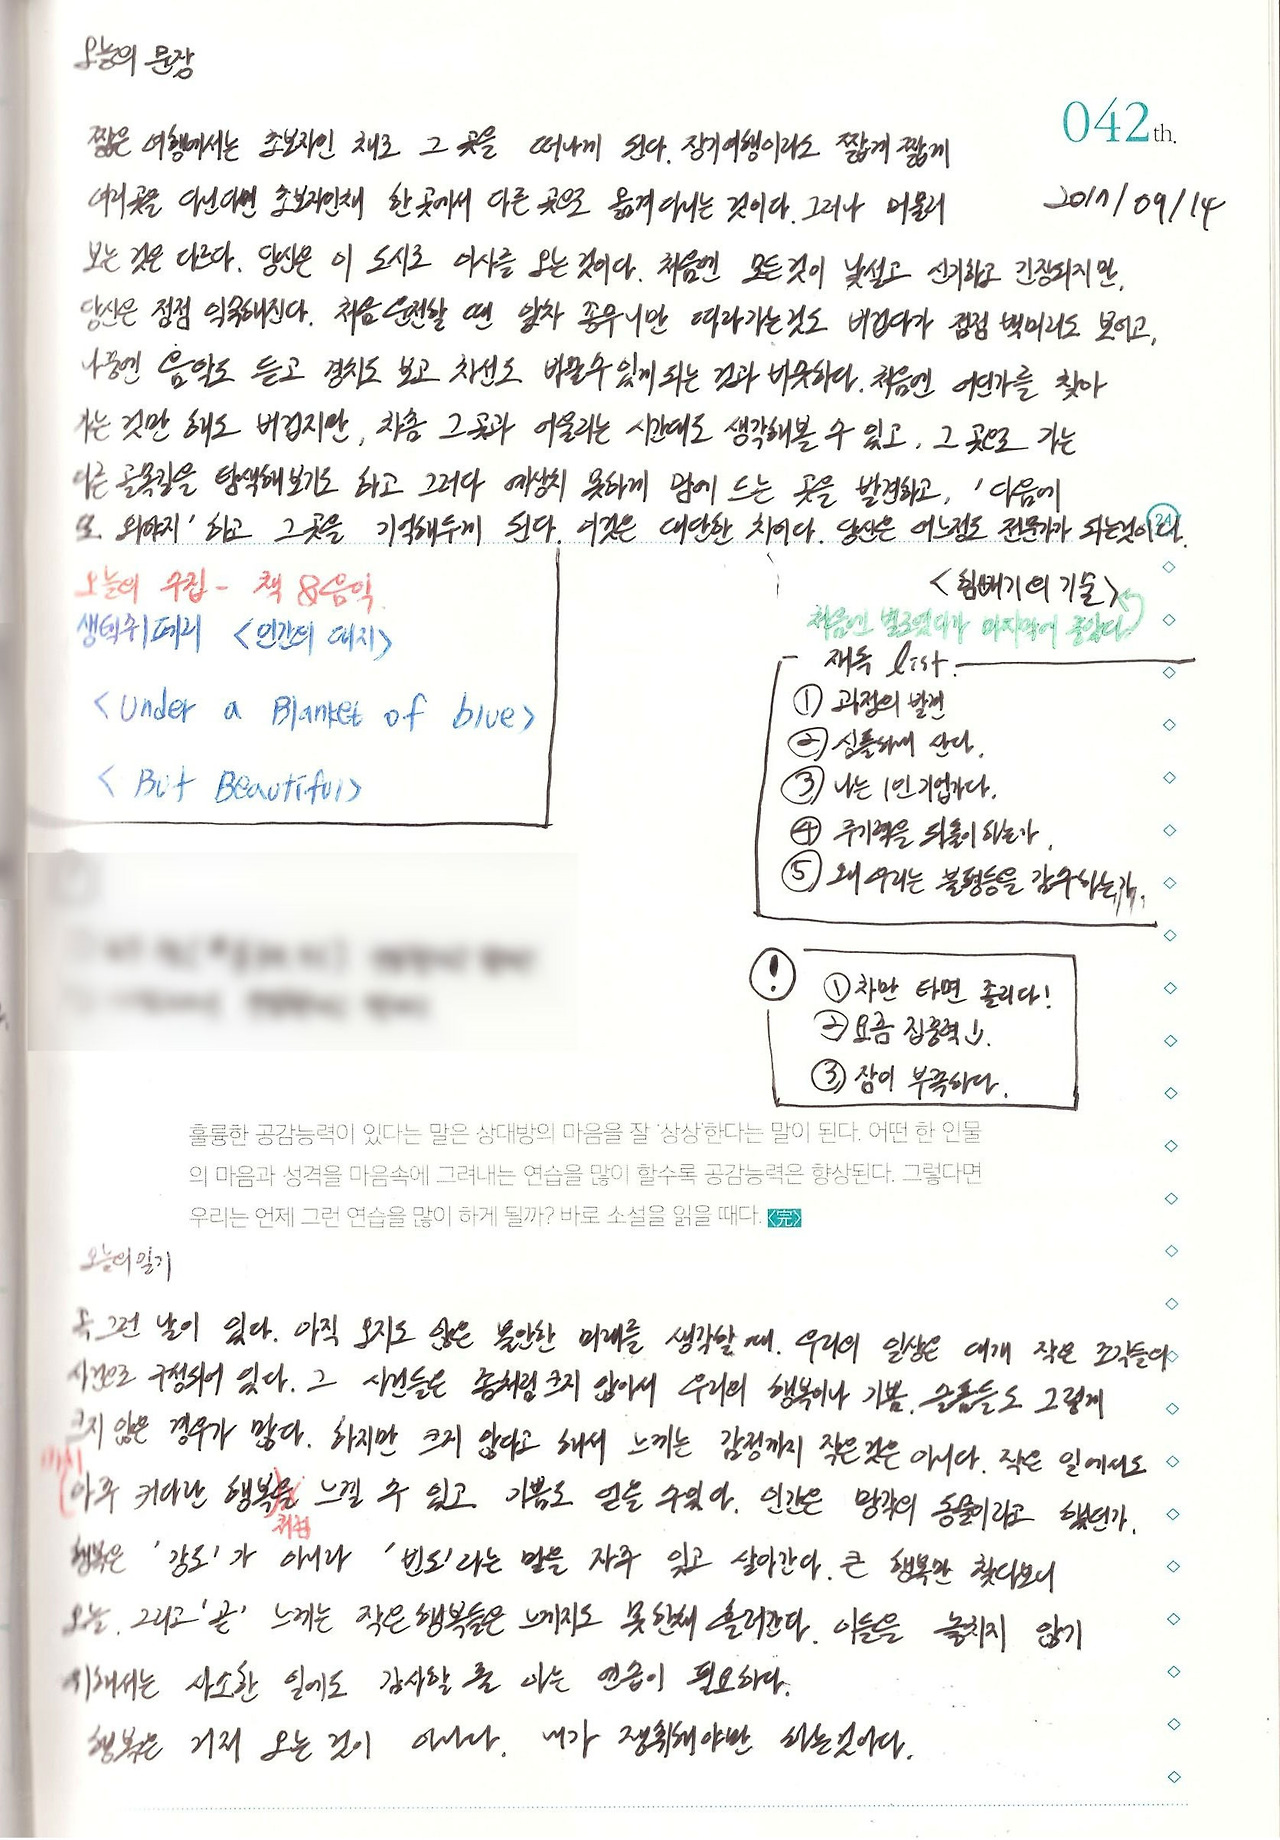 오늘의 문장
042th.
2017/09/14
짧은 여행에서는 초보자인 채로 그 곳을 떠나게 된다. 장기여행이라도 짧게 짧게
여러곳을 다닌다면 초보자인채 한 곳에서 다른 곳으로 옮겨다니는 것이다. 그러나 머물러
보는 것은 다르다. 당신은 이 도시로 이사를 오는것이다. 처음엔 모든것이 낯설고 신기하고 긴장되지만,
당신은 점점 익숙해진다. 처음 운전할 땐 앞차 꽁무니만 따라가는것도 버겁다가 점점 백미러도 보이고,
나중엔 음악도 듣고 경치도 보고 차선도 바꿀수 있게 되는 것과 비슷하다. 처음엔 어딘가를 찾아
가는 것만 해도 버겁지만, 차츰 그곳과 어울리는 시간대도 생각해볼 수 있고, 그 곳으로 가는
다른 골목길을 탐색해보기도 하고 그러다 예상치 못하게 맘에 드는 곳을 발견하고, '다음에
또 와야지' 하고 그곳을 기억해두게 된다. 이것은 대단한 차이다. 당신은 어느정도 전문가가 되는것이다.
24
<힘빼기의 기술>
처음엔 별로였다가 마지막에 좋았다
오늘의 수집 - 책 & 음악
생텍쥐페리 <인간의 대지>
<Under a Blanket of blue>
<But Beautiful>
재독 list.
① 과정의 발견
② 심플하게 산다.
③ 나는 1인기업가다.
④ 주기력을 되돌이하는가.
⑤ 왜 우리는 불평등을 감수하는가.
!
① 차만 타면 졸리다!
② 요즘 집중력↓.
③ 잠이 부족하다.
훌륭한 공감능력이 있다는 말은 상대방의 마음을 잘 '상상'한다는 말이 된다. 어떤 한 인물
의 마음과 성격을 마음속에 그려내는 연습을 많이 할수록 공감능력은 향상된다. 그렇다면
우리는 언제 그런 연습을 많이 하게 될까? 바로 소설을 읽을 때다. <完>
오늘의 일기
꼭 그런 날이 있다. 아직 오지도 않은 불안한 미래를 생각할 때. 우리의 일상은 대개 작은 조각들의
사건으로 구성되어 있다. 그 사건들은 좀처럼 크지 않아서 우리의 행복이나 기쁨, 슬픔들도 그렇게
크지 않은 경우가 많다. 하지만 크지 않다고 해서 느끼는 감정까지 작은것은 아니다. 작은 일에서도
아주 커다란 행복을 느낄 수 있고 기쁨도 얻을 수있다. 인간은 망각의 동물이라고 했던가.
행복은 '강도'가 아니라 '빈도'라는 말을 자주 잊고 살아간다. 큰 행복만 찾다보니
오늘, 그리고 '곧' 느끼는 작은 행복들은 느끼지도 못한채 흘러간다. 이들을 놓치지 않기
위해서는 사소한 일에도 감사할 줄 아는 연습이 필요하다.
행복은 거저 오는 것이 아니다. 내가 쟁취해야만 하는것이다.